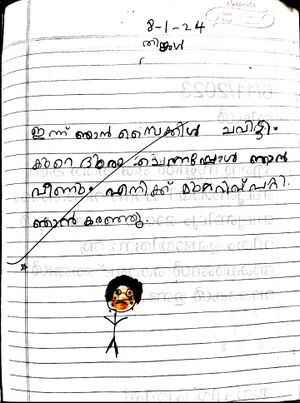 8-1-24
തിങ്കൾ
ഇന്ന് ഞാൻ സൈക്കിൾ ചവിട്ടി.
കുറെ ദൂരം ചെന്നപ്പോൾ ഞാൻ
വീണു. എനിക്ക് മുറിവ് പറ്റി.
ഞാൻ കരഞ്ഞു.